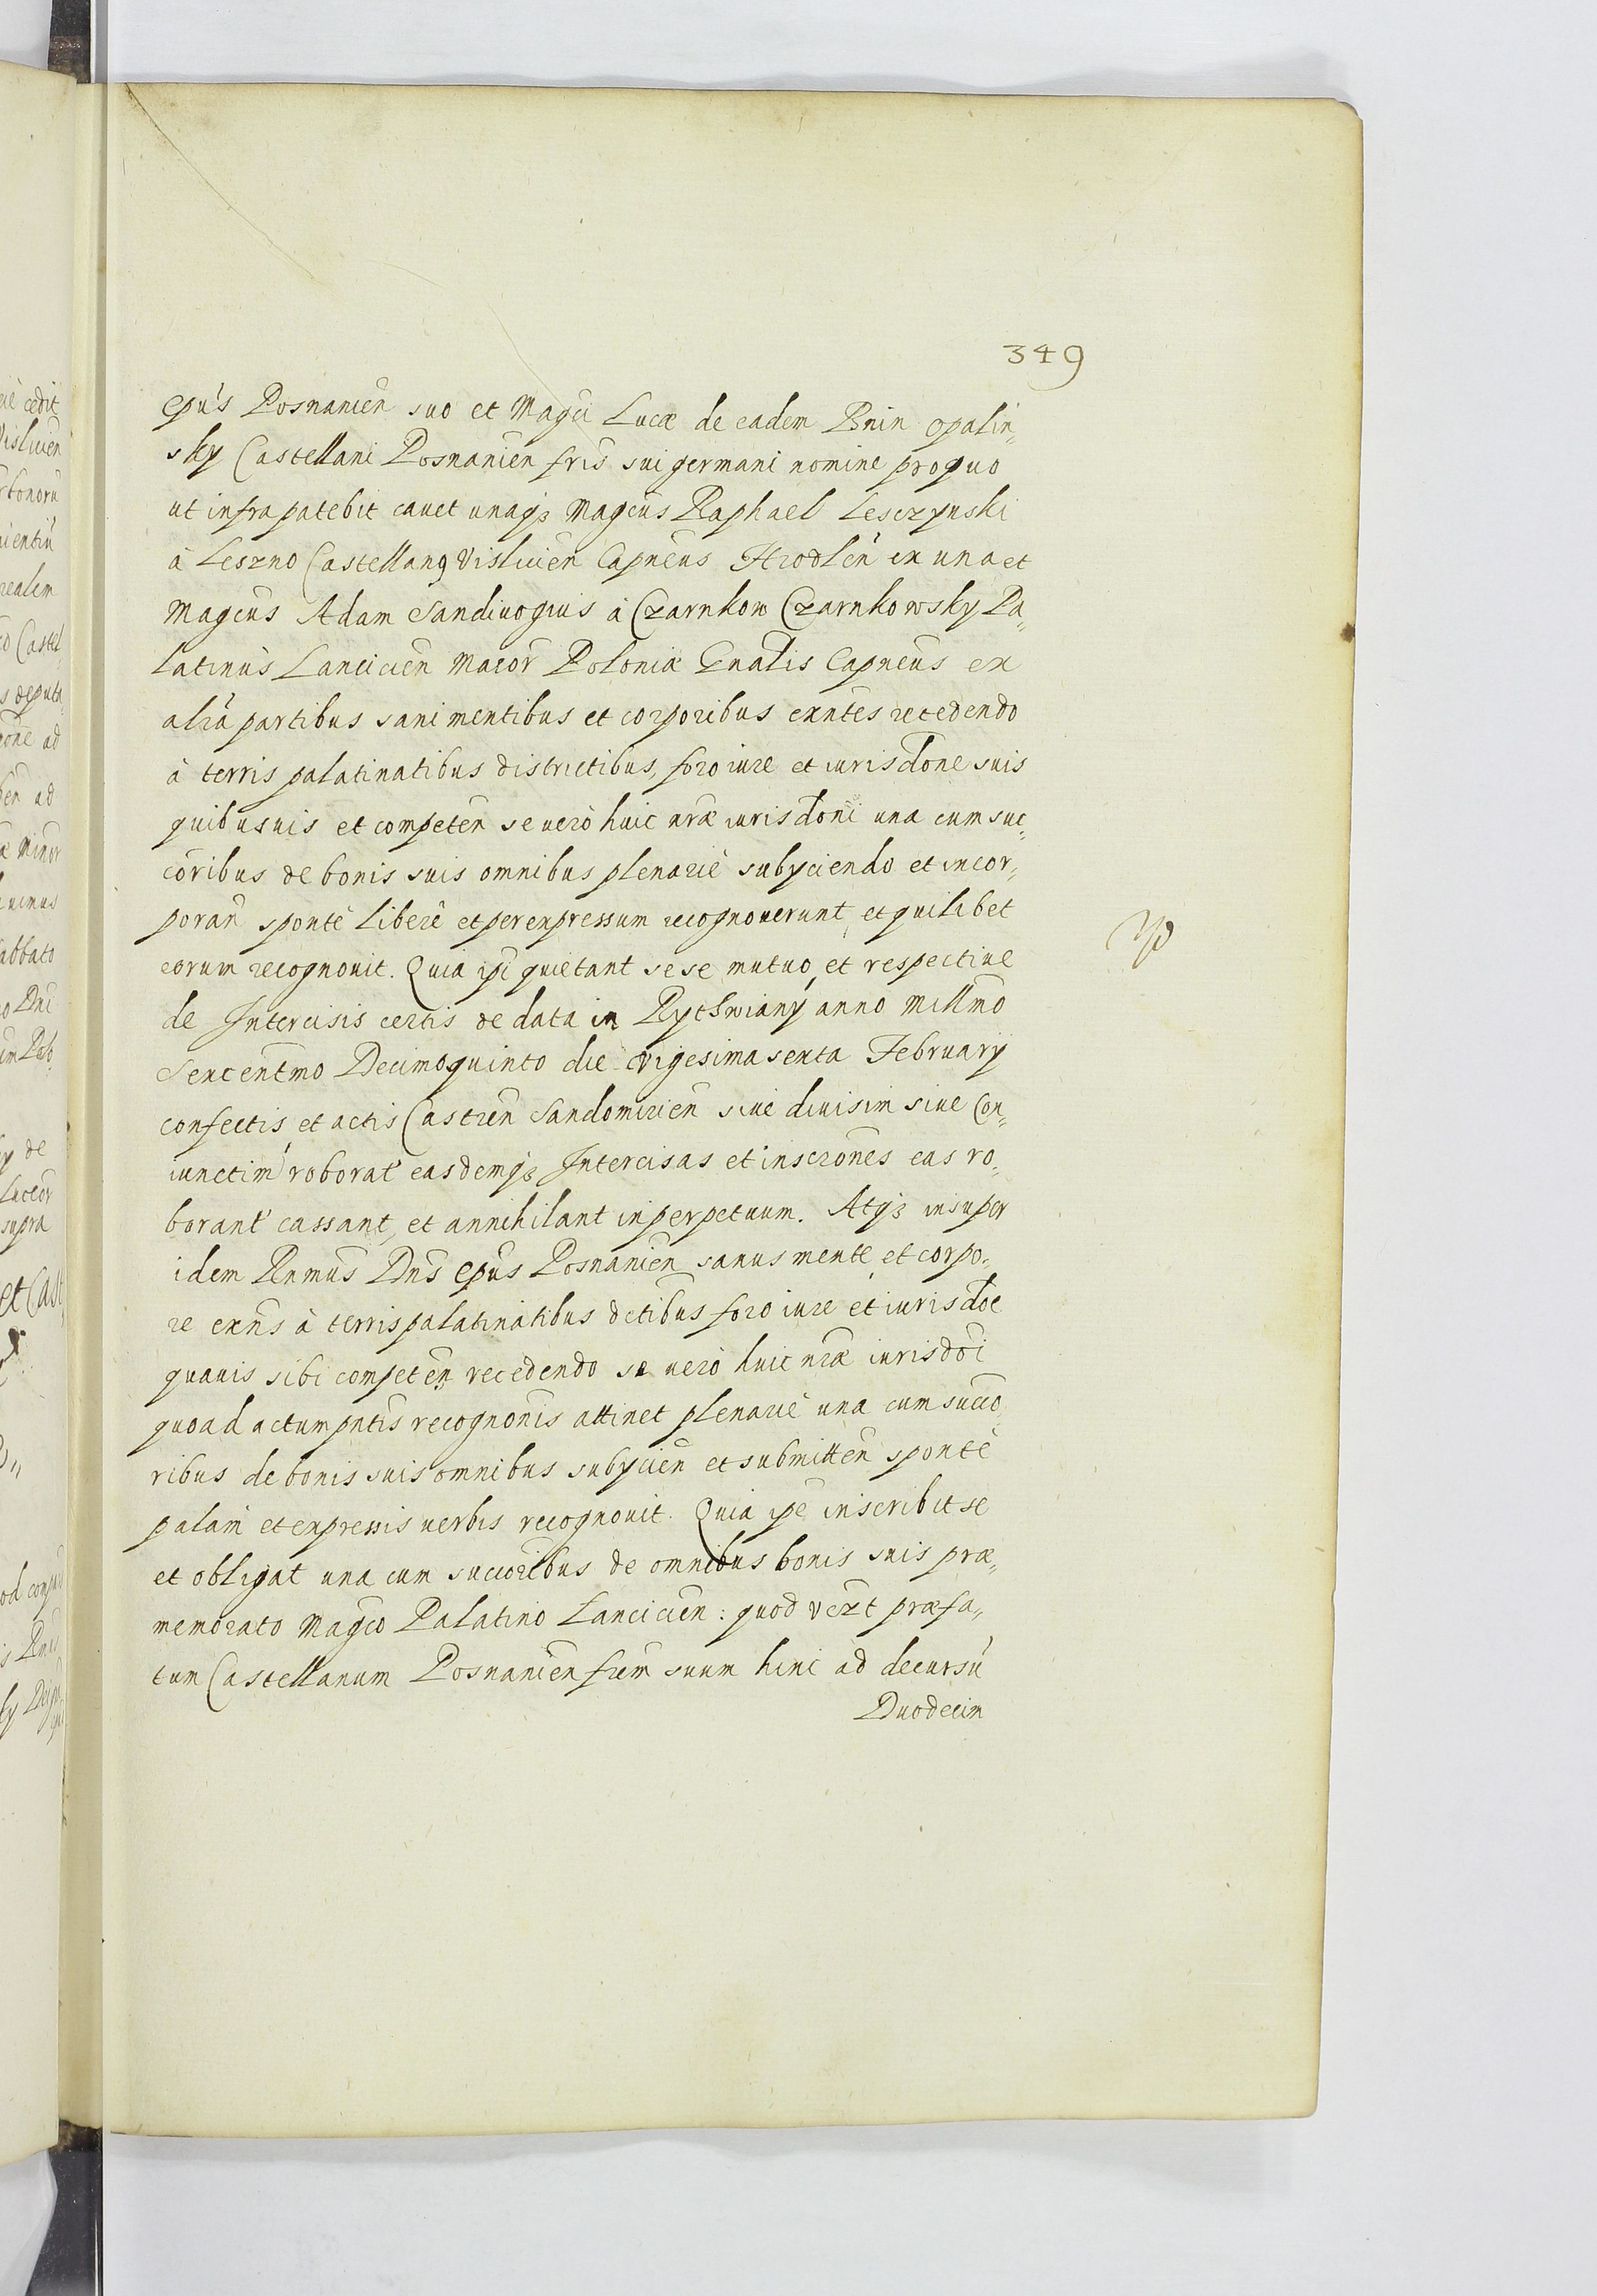 349
Epus Posnanien suo et Magci Lucæ de eadem Bnin Opalin„
sky Castellani Posnanien fris sui germani nomine pro quo
ut infra patebit cavet unaqз Magcus Raphael Lesczynski
à Leszno Castellanꝯ Vislicien Capneus Hrodlen ex una et
Magcus Adam Sandivogius à Czarnkow Czarnkowsky Pa„
latinus Lancicien Maior Poloniæ Gnalis Capneus ex
alia partibus sani mentibus et corporibus exntes recedendo
à terris palatinatibus districtibus, foro iure et iurisdone suis
quibusuis et competen se uerò huic nræ iurisdoni una cum suc„
coribus de bonis suis omnibus plenariè subyciendo et incor„
poran sponte liberè et per expressum recognouerunt, et quilibet
eorum recognouit. Quia ipi quietant sese mutuo, et respectiue
de Intercisis certis de data in Rythwiany anno Millmo
Sexcentmo Decimoquinto die vigesima sexta February
confectis, et actis Castren Sandomirien siue diuisim siue Con„
iunctim roborat easdemqз Intercisas et inscrones eas ro„
borant cassant, et annihilant in perpetuum. Atqз insuper
idem Rnmus Dns Epus Posnanien sanus mente, et corpo„
re exns à terris palatinatibus dctibus foro iure et iurisdoe
quauis sibi competen recedendo se uerò huic nræ iurisdoi
quoad actum pntis recognonis attinet plenariè una cum succo
ribus de bonis suis omnibus subycien et submitten sponte
palam et expressis uerbis recognouit. Quia ipe inscribit se
et obligat una cum succoribus de omnibus bonis suis præ„
memorato Magco Palatino Lancicien: quod vert præfa„
tum Castellanum Posnanien frem suum hinc ad decursu
Duodecim